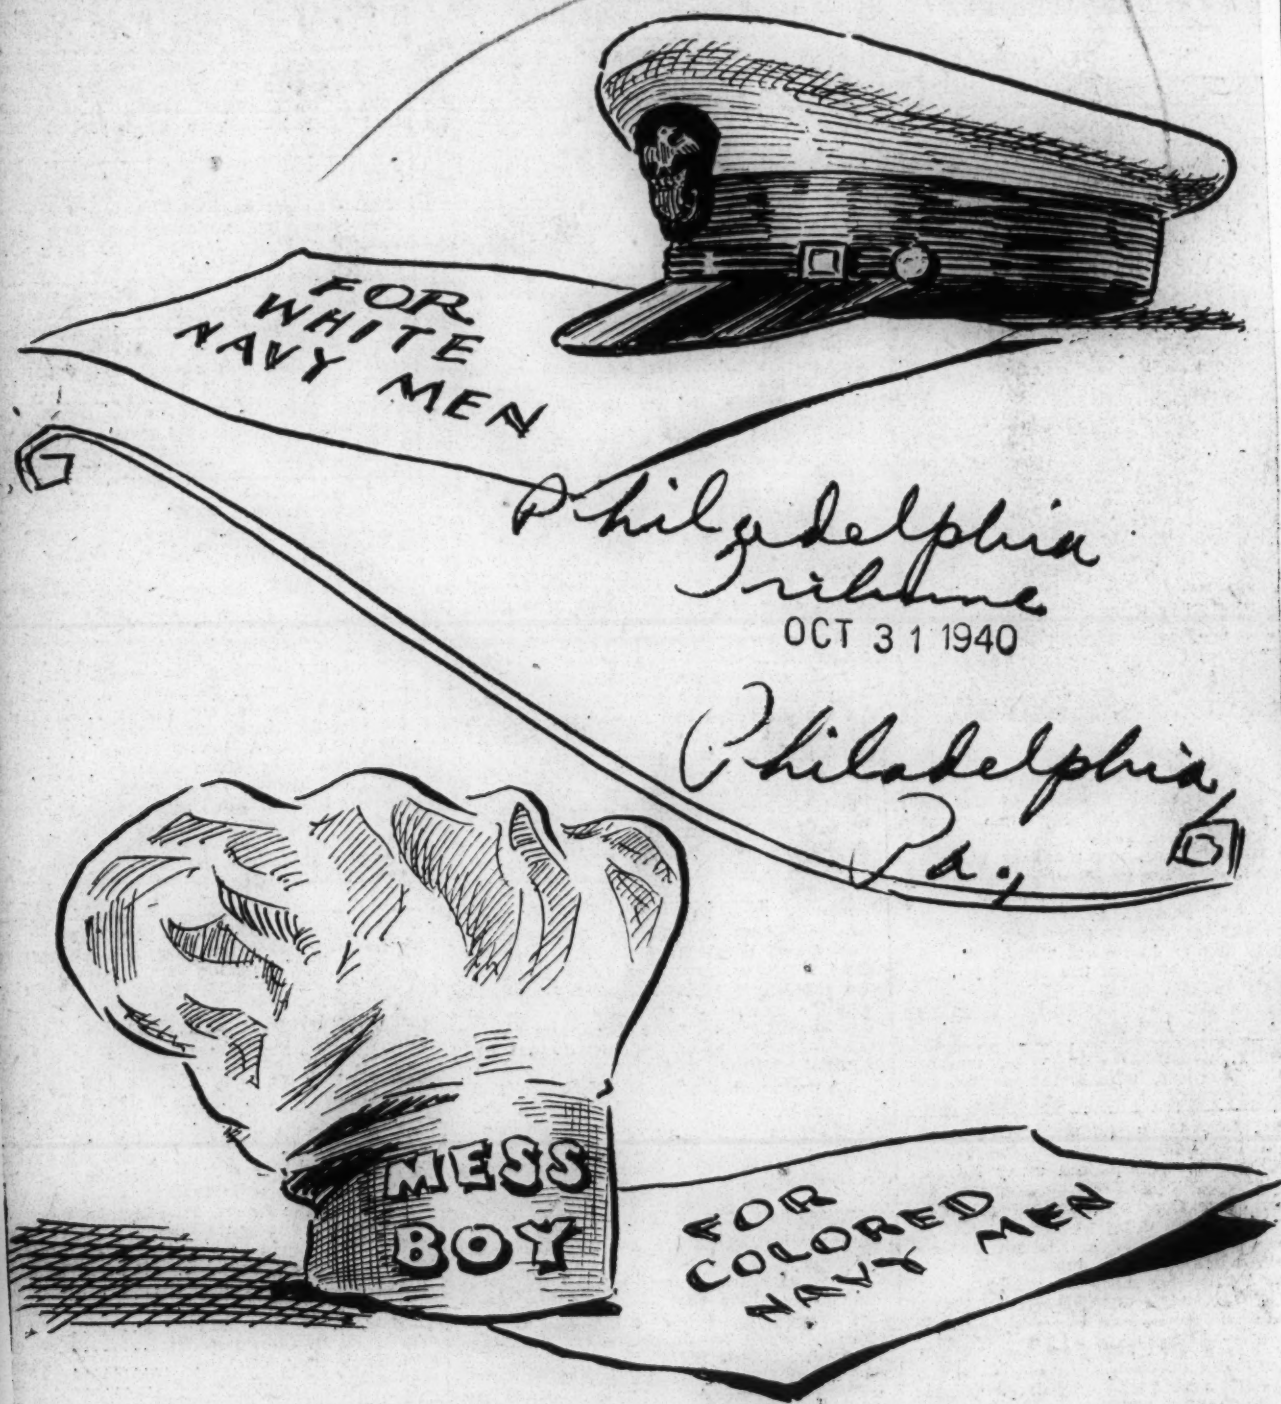 FOR
WHITE
NAVY MEN
Philadelphia
Tribune
OCT 31 1940
Philadelphia,
Pa.,
MESS
BOY
FOR
COLORED
NAVY MEN